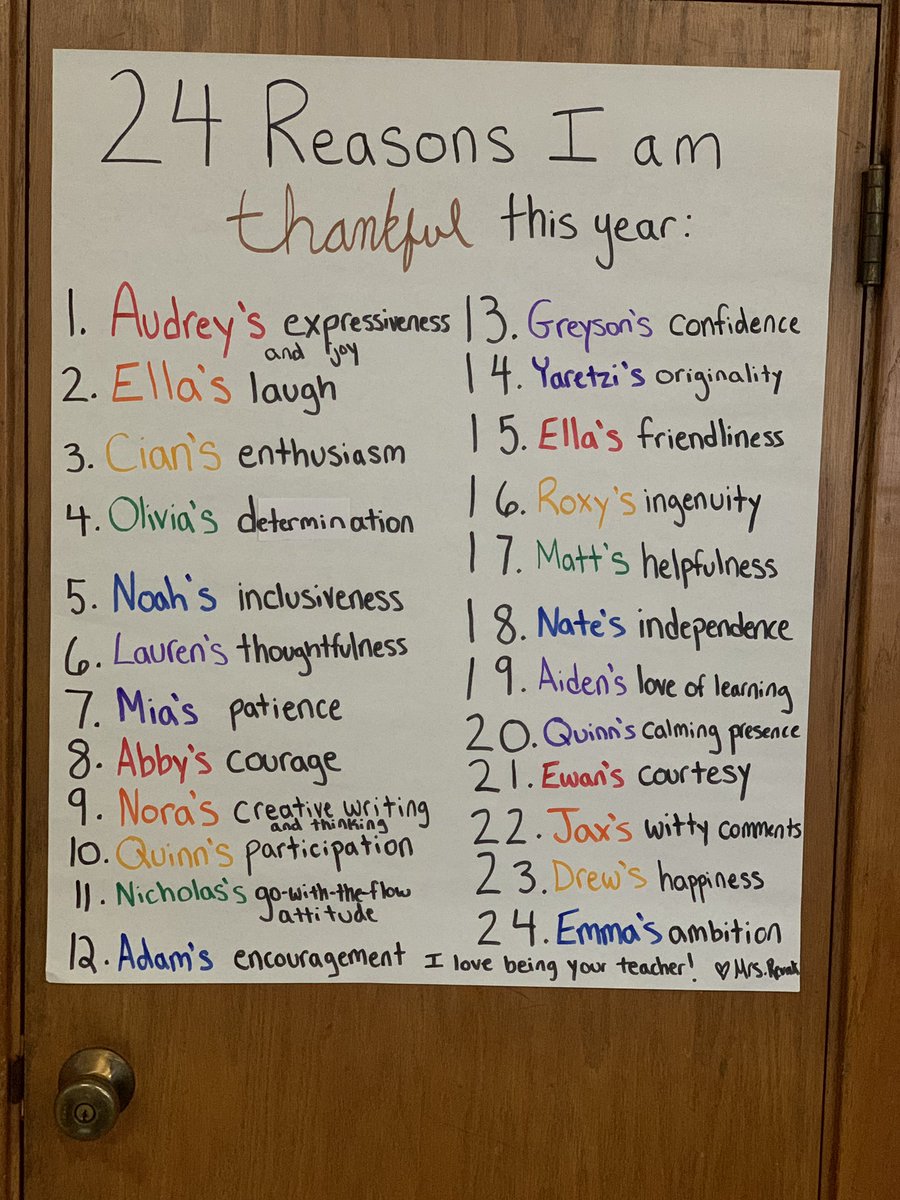 24 Reasons I am
thankful this year:
1. Audrey's expressiveness
and joy
2. Ella's laugh
3. Cian's enthusiasm
4. Olivia's determination
5. Noah's inclusiveness
6. Lauren's thoughtfulness
7. Mia's patience
8. Abby's courage
9. Nora's creative writing
and thinking
10. Quinn's participation
11. Nicholas's go-with-the-flow
attitude
12. Adam's encouragement
13. Greyson's confidence
14. Yaretzi's originality
15. Ella's friendliness
16. Roxy's ingenuity
17. Matt's helpfulness
18. Nate's independence
19. Aiden's love of learning
20. Quinn's calming presence
21. Ewan's courtesy
22. Jax's witty comments
23. Drew's happiness
24. Emma's ambition
I love being your teacher! ♡ Mrs.